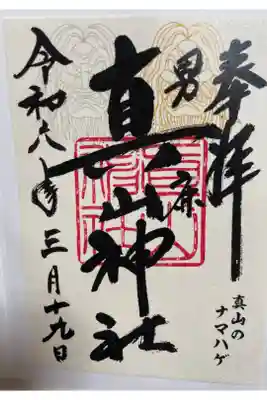 奉拝
男鹿
真山神社
令和六年三月十九日
真山の
ナマハゲ